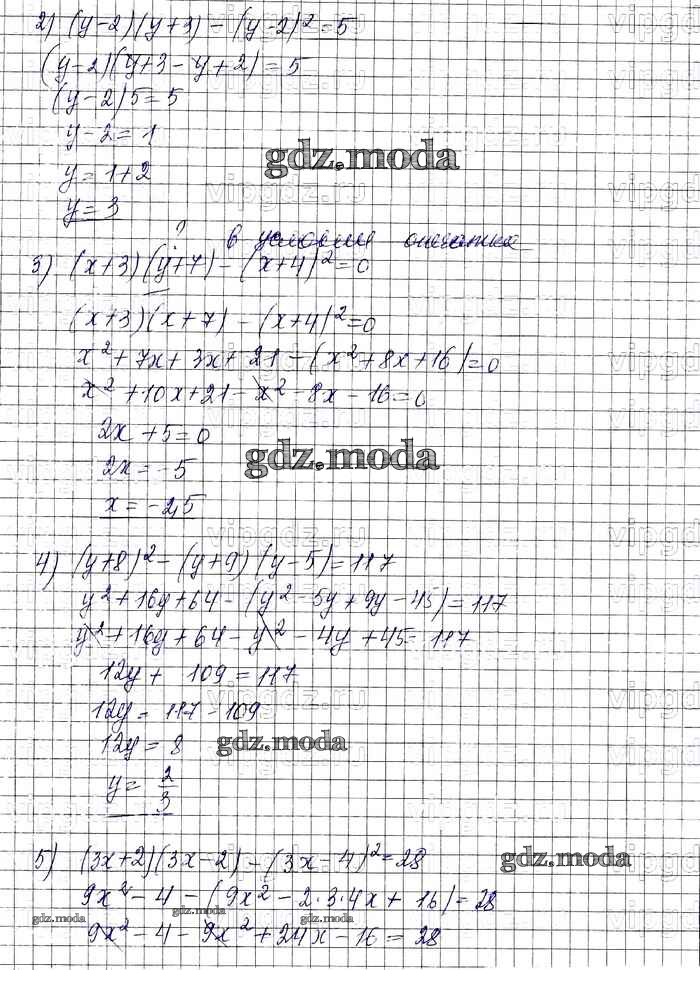 2) (y-2)(y+3) - (y-2)² = 5
(y-2)(y+3-y+2) = 5
(y-2)5 = 5
y-2 = 1
gdz.moda
y = 1+2
y = 3
? в условии опечатка
3) (x+3)(y+7) - (x+4)² = 0
(x+3)(x+7) - (x+4)² = 0
x² + 7x + 3x + 21 - (x² + 8x + 16) = 0
x² + 10x + 21 - x² - 8x - 16 = 0
2x + 5 = 0
gdz.moda
2x = -5
x = -2,5
vipgdz.ru
4) (y+8)² - (y+9)(y-5) = 117
y² + 16y + 64 - (y² - 5y + 9y - 45) = 117
y² + 16y + 64 - y² - 4y + 45 = 117
12y + 109 = 117
12y = 117 - 109
12y = 8
gdz.moda
y = 2/3
5) (3x+2)(3x-2) - (3x-4)² = 28
gdz.moda
9x² - 4 - (9x² - 2·3·4x + 16) = 28
gdz.moda
gdz.moda
9x² - 4 - 9x² + 24x - 16 = 28